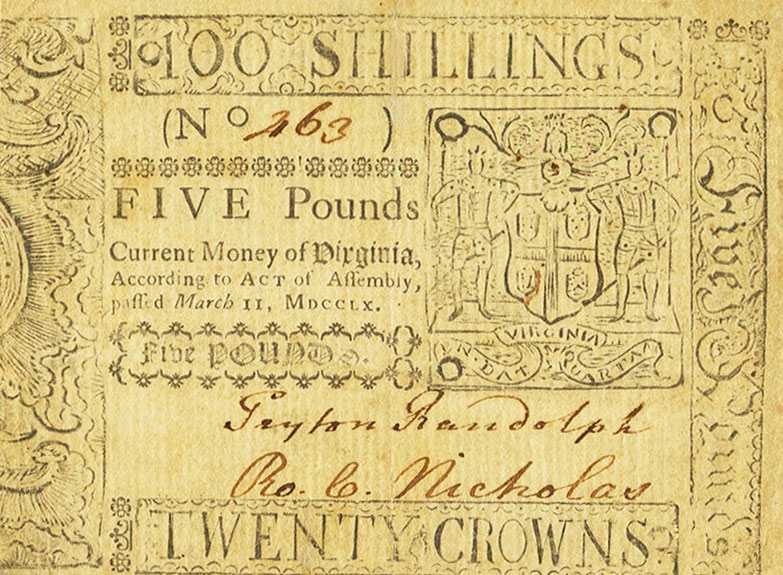 100 SHILLINGS.
(No 263)
FIVE Pounds
Current Money of Virginia,
According to ACT of Aſſembly,
paſſed March 11, MDCCLX.
Five POUNDS.
VIRGINIA
EN·DAT QUARTAM
Peyton Randolph
Ro. C. Nicholas
TWENTY CROWNS.
Five Pounds